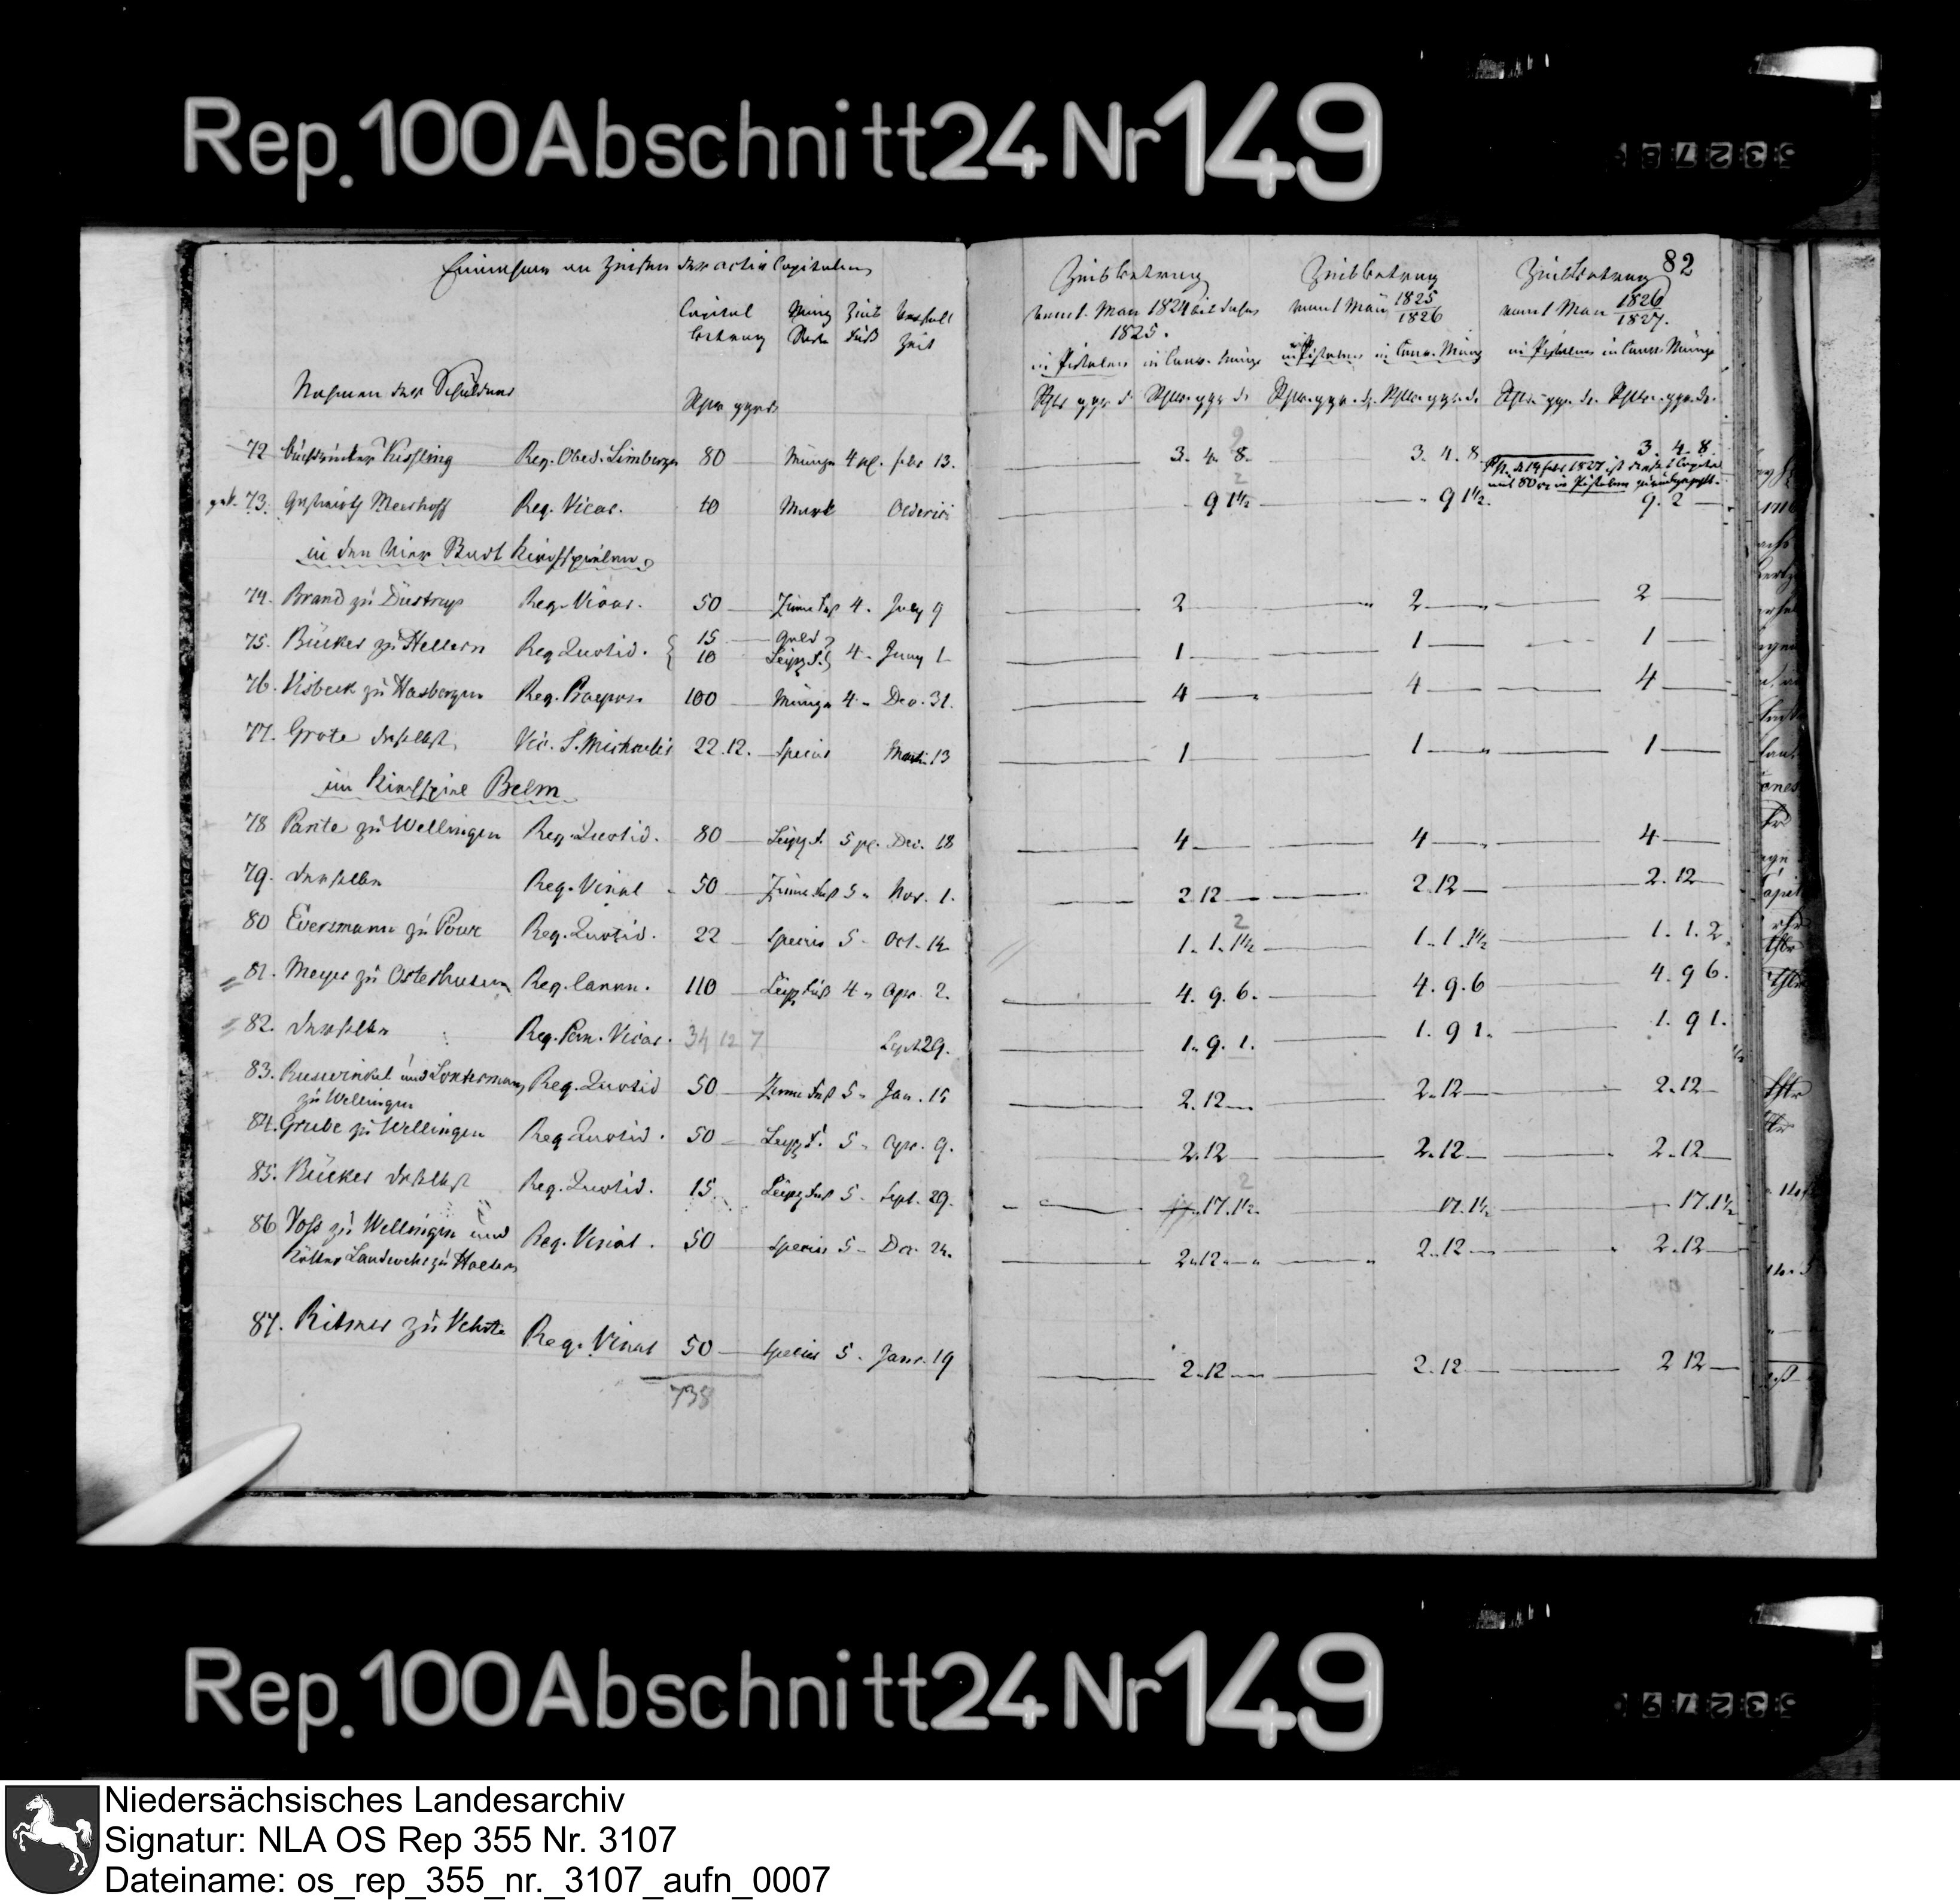 Rep. 100 Abschnitt 24 Nr 149
82
Einnahme an Zinsen der activ Capitalien
Zinsbetrag Zinsbetrag Zinsbetrag
Capital Münz Zins Verfall
betrag Sorte Fuß Zeit
vom 1. May 1824 bis dahin 1825. vom 1 May 1825/1826 vom 1 May 1826/1827.
in Pistolen in Conv. Münze in Pistolen in Conv. Münz in Pistolen in Conv. Münze
Nahmen der Schuldner
Rthlr ggr d Rthlr. ggr d Rthlr. ggr. d. Rthlr. ggr. d. Rthlr. ggr. d. Rthlr. ggr. d.
72 Buchbinder Kissling Reg. Obed. Limberger 80 Münze 4 pC. febr 13. 3. 4. 8. 3. 4. 8 3. 4. 8.
73. Meerhoff Reg. Vicar. 10 Mark 9 1½ 9 1½ 9. 2
in den vier Kirchspielen
74. Brand zu Düstrup Reg. Vicar. 50 4. July 9 2 2 2
75. Bücker zu Hellern Reg Quotid. 15 Gold
10 Leipz. F. 4. Juny 1 1 1 1
76. Visbeck zu Hasbergen Reg. Praepos. 100 Münze 4 Dec. 31. 4 4 4
77. Grote daselbst Vic. S. Michaelis 22. 12. Species Martin 13 1 1 1
im Kirchspiel Belm
78 Pante zu Wellingen Reg. Quotid. 80 Leipz. F. 5 pC. Dec. 18 4 4 4
79. derselbe Reg. Vinal 50 5 Nov. 1. 2 12 2 12 2. 12
80 Eversmann zu Powe Reg. Quotid. 22 Species 5 Oct. 14. 1. 1. 1½ 1. 1. 1½ 1. 1. 2.
81. Meyer zu Osterhusen Reg. Cannn. 110 Leipz Fuß 4 Apr. 2. 4. 9. 6. 4. 9. 6 4. 9 6.
82. derselbe Reg. Pan. Vicar. 34 12 7 Sept 29. 1. 9. 1. 1. 9 1. 1. 9 1.
83. Ruswinkel und Lonterman Reg. Quotid 50 5 Jan. 15 2. 12 2. 12 2. 12
zu Wellingen
84. Grube zu Wellingen Reg Quotid. 50 Leipz F. 5 Apr. 9. 2. 12 2. 12 2. 12
85. Bücker daselbst Reg. Quotid. 15 Leipz Fuß 5 Sept. 29. 17. 1½. 17. 1½ 17. 1½
86 Voss zu Wellingen und Reg. Vinal. 50 Species 5 Dec. 24. 2. 12 2. 12 2. 12
Kötter Landwehr zu Haltern
87. Ritmer zu Vehrte Reg. Vinal 50 Species 5. Janr. 19 2. 12 2. 12 2 12
738
Rep. 100 Abschnitt 24 Nr 149
Niedersächsisches Landesarchiv
Signatur: NLA OS Rep 355 Nr. 3107
Dateiname: os_rep_355_nr._3107_aufn_0007